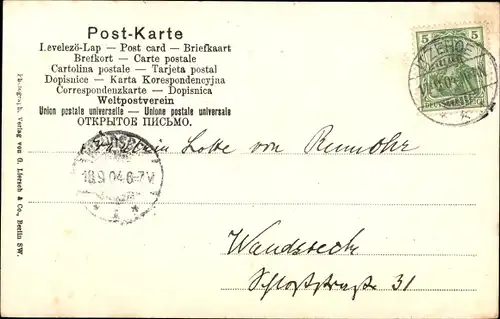 Post-Karte
Levelező-Lap — Post card — Briefkaart
Brefkort — Carte postale
Cartolina postale — Tarjeta postal
Dopisnice — Karta Korespondencyjna
Correspondenzkarte — Dopisnica
Weltpostverein
Union postale universelle — Unione postale universale
ОТКРЫТОЕ ПИСЬМО.
5 5
ITZEHOE
DEUTSCHES REICH
Lotte von Rumohr
18.9.04.6-7V.
Wandsbeck
Schloßstraße 31
Photograph. Verlag von G. Liersch & Co., Berlin SW.